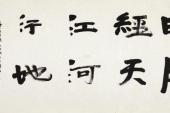 日月
經天
江河
行地